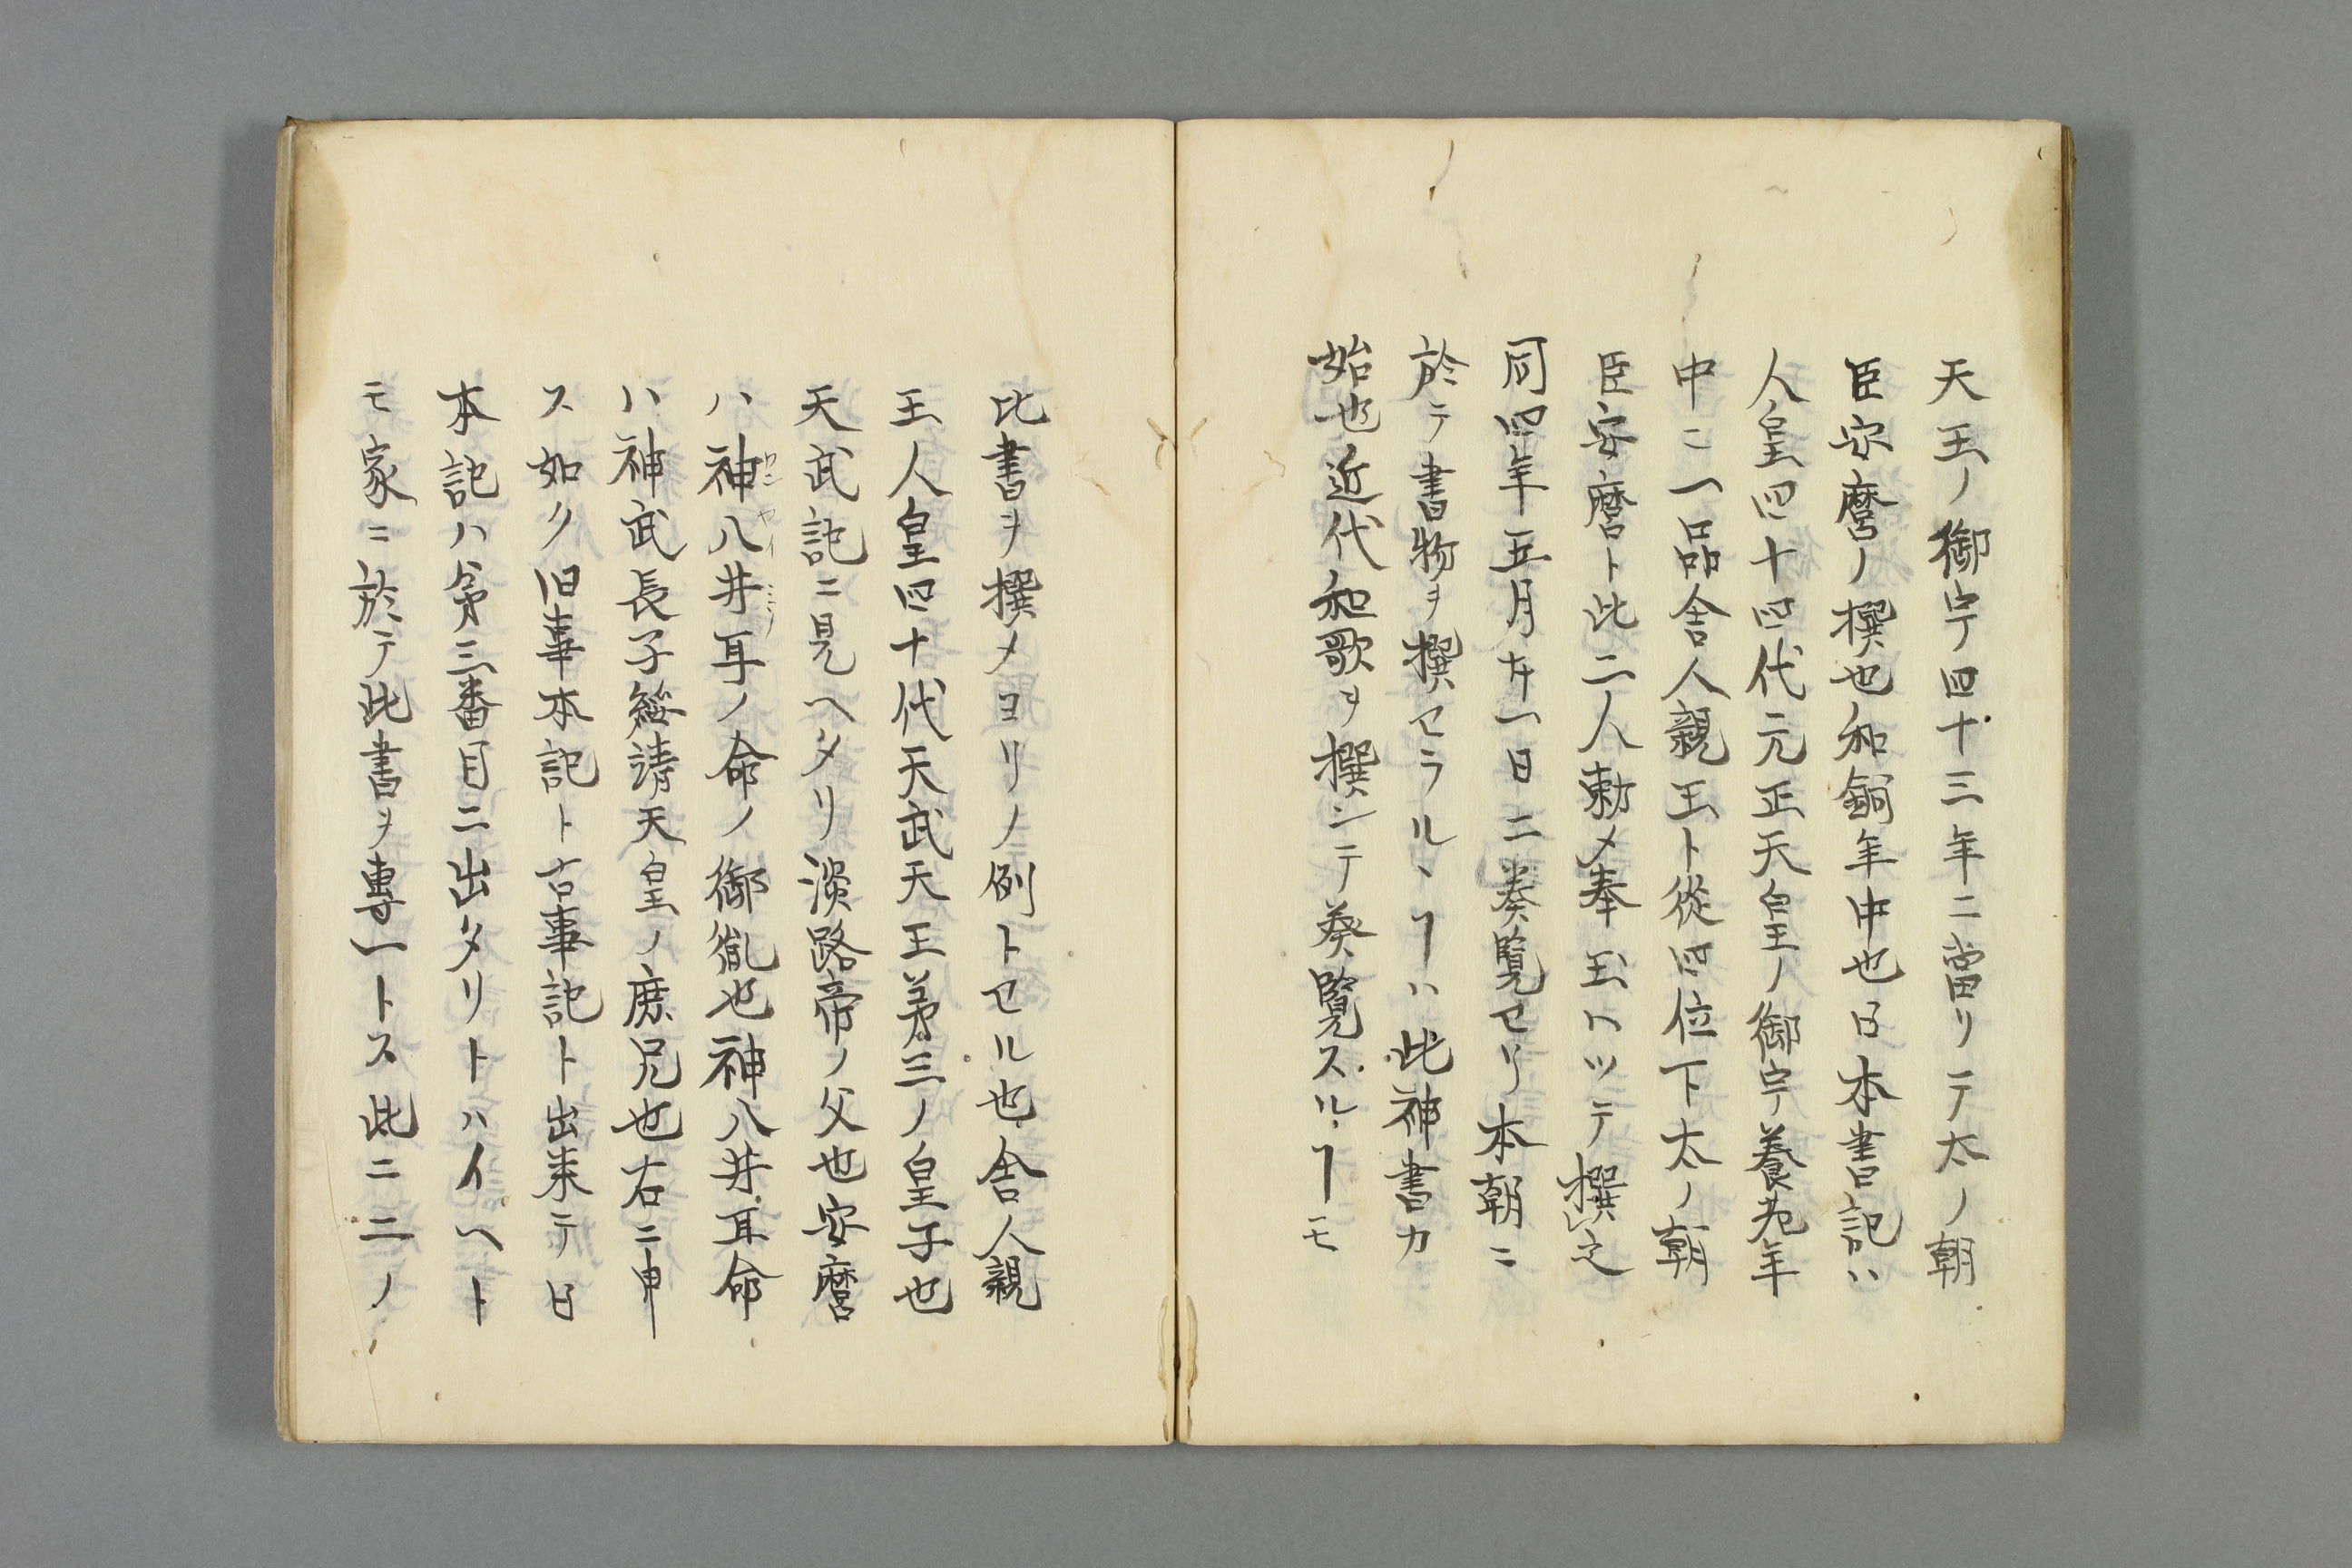 天王ノ御宇四十三年ニ當リテ太ノ朝
臣安麿ノ撰也和銅年中也日本書記ハ
人皇四十四代元正天皇ノ御宇養老年
中ニ一品舎人親王ト從四位下太ノ朝
臣安麿ト此二人勅メ奉玉ハツテ撰之
同四年五月廿一日ニ奏覧セリ本朝ニ
於テ書物ヲ撰セラルヽヿハ此神書カ
始也近代和歌ヲ撰シテ奏覧スルヿモ
此書ヲ撰メヨリノ例トセル也舎人親
王人皇四十代天武天王第三ノ皇子也
天武記ニ見ヘタリ淡路帝ノ父也安麿
ハ神八井耳ノ命ノ御胤也神八井耳命
ハ神武長子綏靖天皇ノ庶兄也右ニ申
ス如ク旧事本記ト古事記ト出来テ日
本記ハ第三番目ニ出タリトハイヘト
モ家ニ於テ此書ヲ專一トス此ニ二ノ